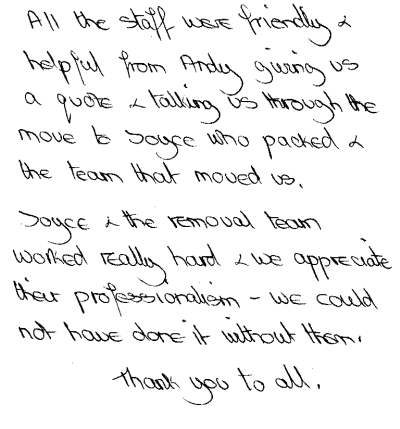 All the staff were friendly &
helpful from Andy giving us
a quote & talking us through the
move to Joyce who packed &
the team that moved us.
Joyce & the removal team
worked really hard & we appreciate
their professionalism - we could
not have done it without them.
Thank you to all.